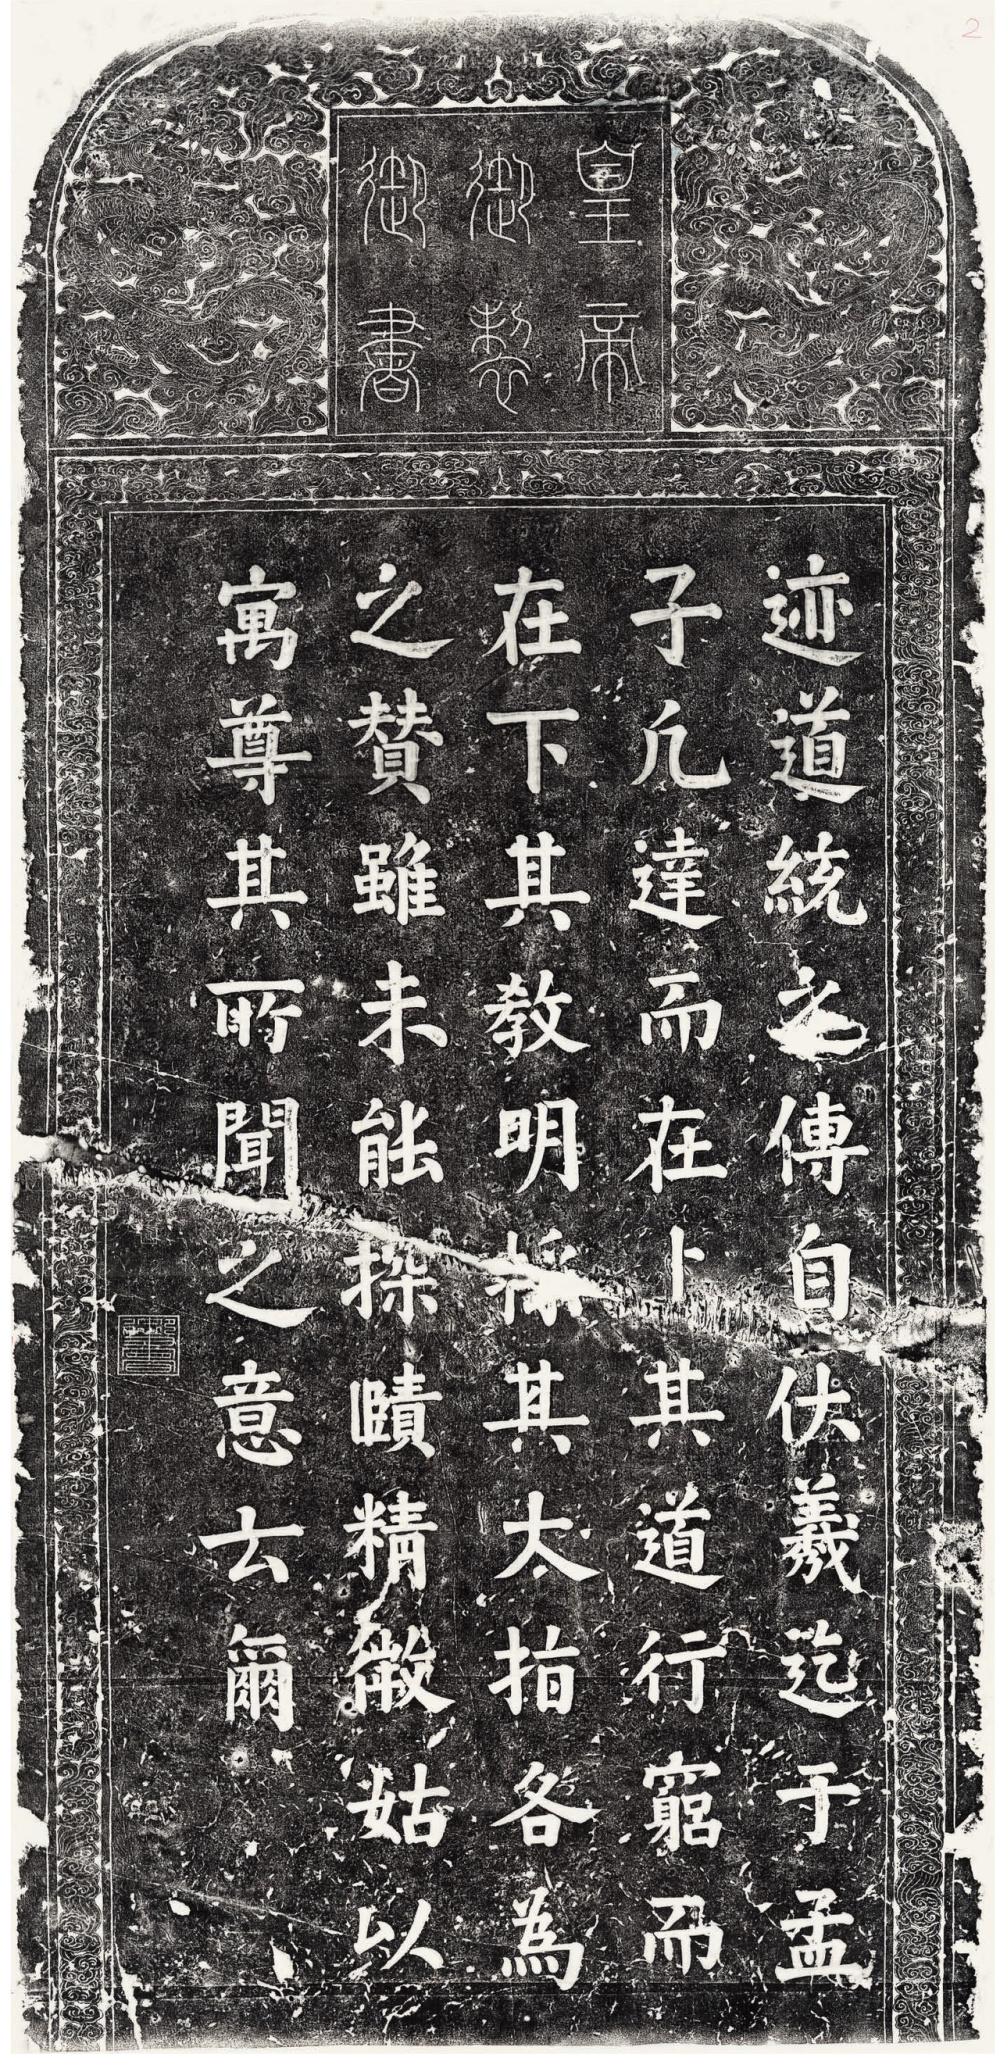 皇帝
御製
御書
迹道統之傳自伏羲迄于孟
子凢達而在上其道行窮而
在下其教明採其大指各為
之賛雖未能探賾精微姑以
寓尊其所聞之意云爾